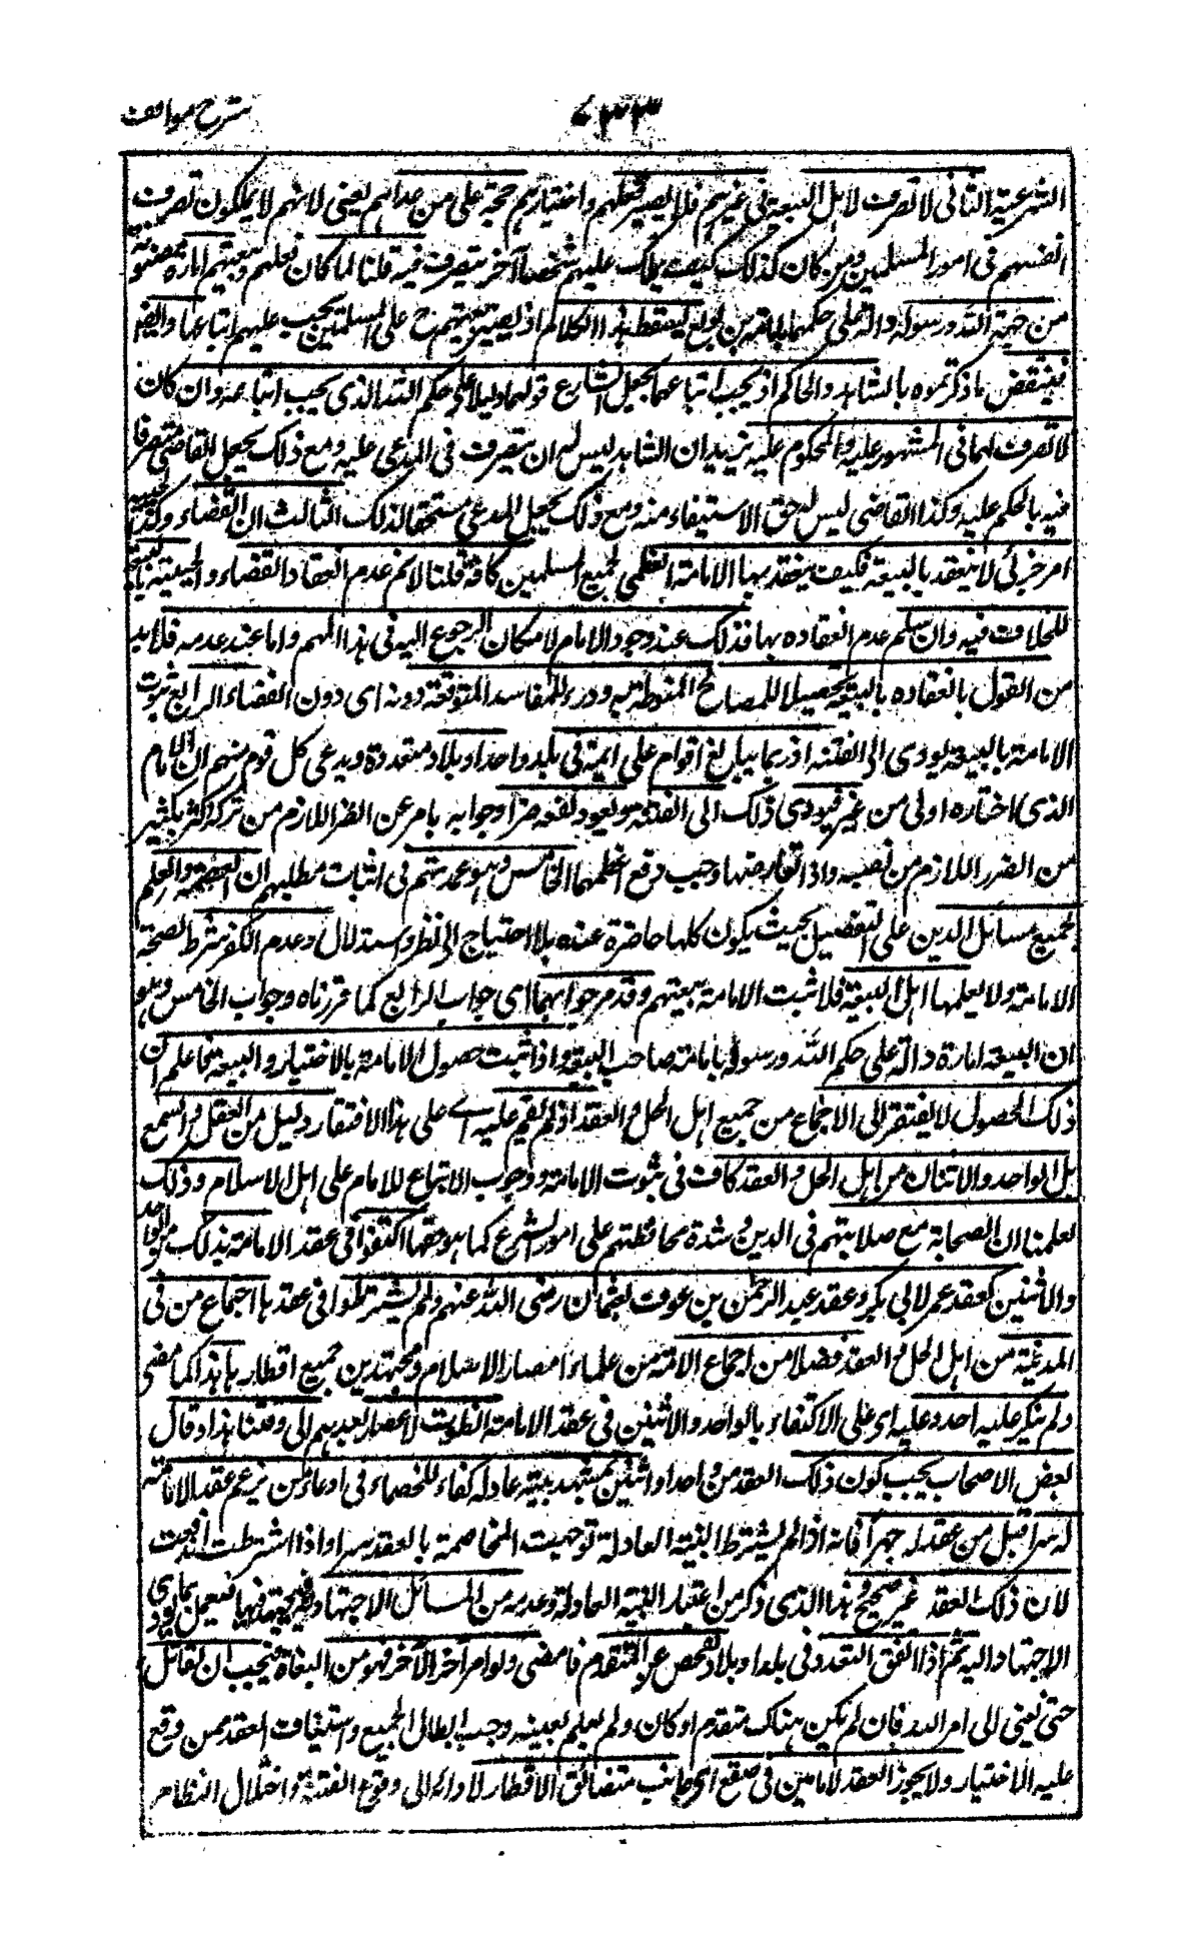 شرح مواقف
۷۳۳
الشرعية الثانی لا تصرف لاہل البیعة فی غیرہم فلا یصیر فعلہم واختیارہم حجة علی من عداہم یعنی لانہم لا یملکون تصرف
انفسہم فی امور المسلمین ومن کان کذلک کیف یملک علیہم شخصا آخر یتصرف فیہ قلنا لما کان فعلہم وبیعتہم امارة منصوبة
من جہة اللہ ورسولہ دالة علی حکمہما بامامة من بویع لیسقط ہذا الکلام اذ یصیر بیعتہم ح علی المسلمین یجب علیہم اتباعہا وایضا
فینتقض ما ذکرتموہ بالشاہد والحاکم اذ یجب اتباعہما لجعل الشارع قولہما دلیلا علی حکم اللہ الذی یجب اتباعہ وان کان
لا تصرف لہما فی المشہود علیہ والمحکوم علیہ یرید ان الشاہد لیس لہ ان یتصرف فی المدعی علیہ ومع ذلک یجعل القاضی متصرفا
فیہ بالحکم علیہ وکذا القاضی لیس لہ حق الاستیفاء منہ ومع ذلک یجعل المدعی مستحقا لذلک الثالث ان القضاء وکذا الحسبة
امر جزئی لا ینعقد بالبیعة فکیف ینعقد بہا الامامة العظمی لجمیع المسلمین کافة قلنا لا نم عدم انعقاد القضاء والحسبة بالبیعة
للخلاف فیہ وان سلم عدم انعقادہ بہا فذلک عند وجود الامام لامکان الرجوع الیہ فی ہذا المہم واما عند عدمہ فلا بد
من القول بانعقادہ بالبیعة تحصیلا للمصالح المنوطة بہ ودرءا للمفاسد المتوقعة دونہ ای دون القضاء الرابع ثبوت
الامامة بالبیعة یودی الی الفتنة اذ ربما یبایع اقوام علی ایمة فی بلد واحد او بلاد متعددة ویدعی کل قوم منہم ان الامام
الذی اختارہ اولی من غیرہ فیودی ذلک الی الفتنة ویعود نفعہ ضرا وجوابہ ما مر عن الضر اللازم من ترکہ اکثر بکثیر
من الضرر اللازم من نصبہ واذا تعارضا وجب دفع اعظمہما الخامس وہو عمدتہم فی اثبات مطلبہم ان العصمة والعلم
بجمیع مسائل الدین علی التفصیل بحیث یکون کلہا حاضرة عندہ بلا احتیاج الی نظر واستدلال وعدم الکفر شرط لصحة
الامامة ولا یعلمہا اہل البیعة فلا تثبت الامامة ببیعتہم وقد مر جوابہما ای جواب الرابع کما قررناہ وجواب الخامس وہو
ان البیعة امارة دالة علی حکم اللہ ورسولہ بامامة صاحب البیعة واذا ثبت حصول الامامة بالاختیار والبیعة فاعلم ان
ذلک الحصول لا یفتقر الی الاجماع من جمیع اہل الحل والعقد اذ لم یقم علیہ اے علی ہذا الافتقار دلیل من العقل والسمع
بل الواحد والاثنان من اہل الحل والعقد کاف فی ثبوت الامامة ووجوب الاتباع للامام علی اہل الاسلام وذلک
لعلمنا ان الصحابة مع صلابتہم فی الدین وشدة محافظتہم علی امور الشرع کما ہو حقہا اکتفوا فی عقد الامامة بذلک من الواحد
والاثنین کعقد عمر لابی بکر وعقد عبد الرحمن بن عوف لعثمان رضی اللہ عنہم ولم یشترطوا فی عقدہا اجماع من فی
المدینة من اہل الحل والعقد فضلا من اجماع الامة من علماء امصار الاسلام ومجتہدین جمیع اقطارہا ہذا کما مضی
ولم ینکر علیہ احد وعلیہ ای علی الاکتفاء بالواحد والاثنین فی عقد الامامة انطوت الاعصار بعدہم الی وقتنا ہذا وقال
بعض الاصحاب یجب کون ذلک العقد من واحد او اثنین بمشہد بینة عادلة کفا للخصام فی ادعاء من یزعم عقد الامامة
لہ سرا قبل من عقد لہ جہرا فانہ اذا لم یشترط البینة العادلة توجہت المخاصمة بالعقد سرا واذا اشترطت اندفعت
لان ذلک العقد غیر صحیح وہذا الذی ذکر من اعتبار البینة العادلة وعدمہ من المسائل الاجتہادیة فیجتہد فیہا فیعمل بما یودی
الاجتہاد الیہ ثم اذا اتفق التعدد فی بلد او بلاد تفحص عن المتقدم فامضی ولو امر آخر الآخر فہو من البغاة فیجب ان یقاتل
حتی یفئ الی امر اللہ فان لم یکن ہناک متقدم او کان ولم یعلم بعینہ وجب ابطال الجمیع واستیناف العقد لمن وقع
علیہ الاختیار ولا یجوز العقد لامامین فی صقع ای جانب متضائق الاقطار لادائہ الی وقوع الفتنة واختلال النظام